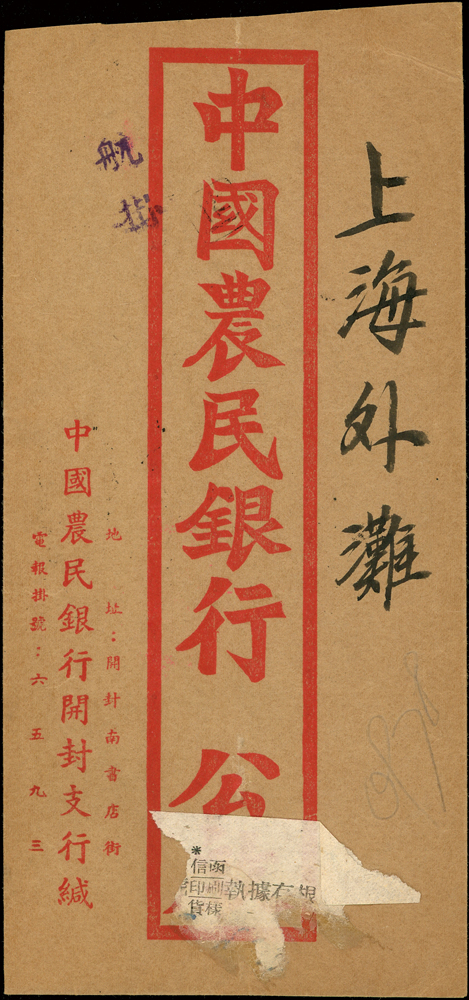 上海外灘
中國農民銀行 公
航
掛
地 址：開封南書店街
中國農民銀行開封支行緘
電報掛號：六五九三
＊
信函
印刷執據有
貨樣